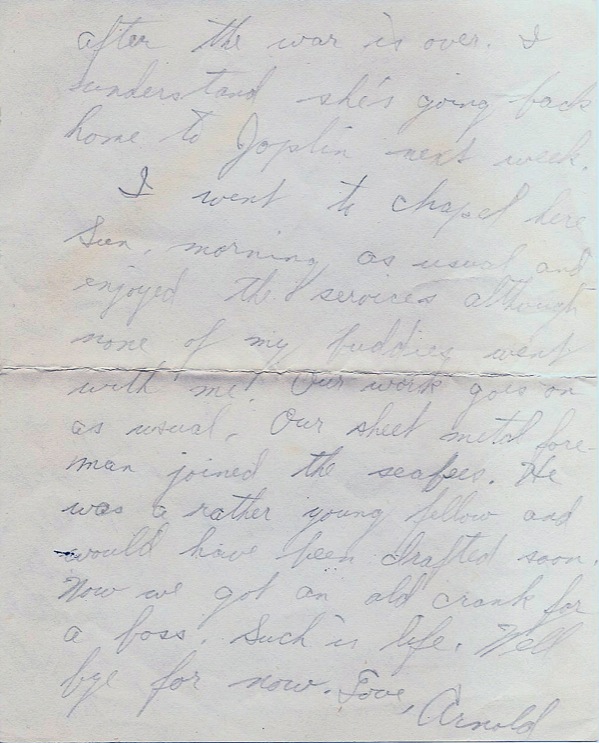 after the war is over. I
understand she's going back
home to Joplin next week.
I went to chapel here
Sun. morning as usual and
enjoyed the services although
none of my buddies went
with me! Our work goes on
as usual. Our sheet metal fore-
man joined the seabees. He
was a rather young fellow and
would have been drafted soon.
Now we got an old crank for
a boss. Such is life. Well
bye for now. Love,
Arnold